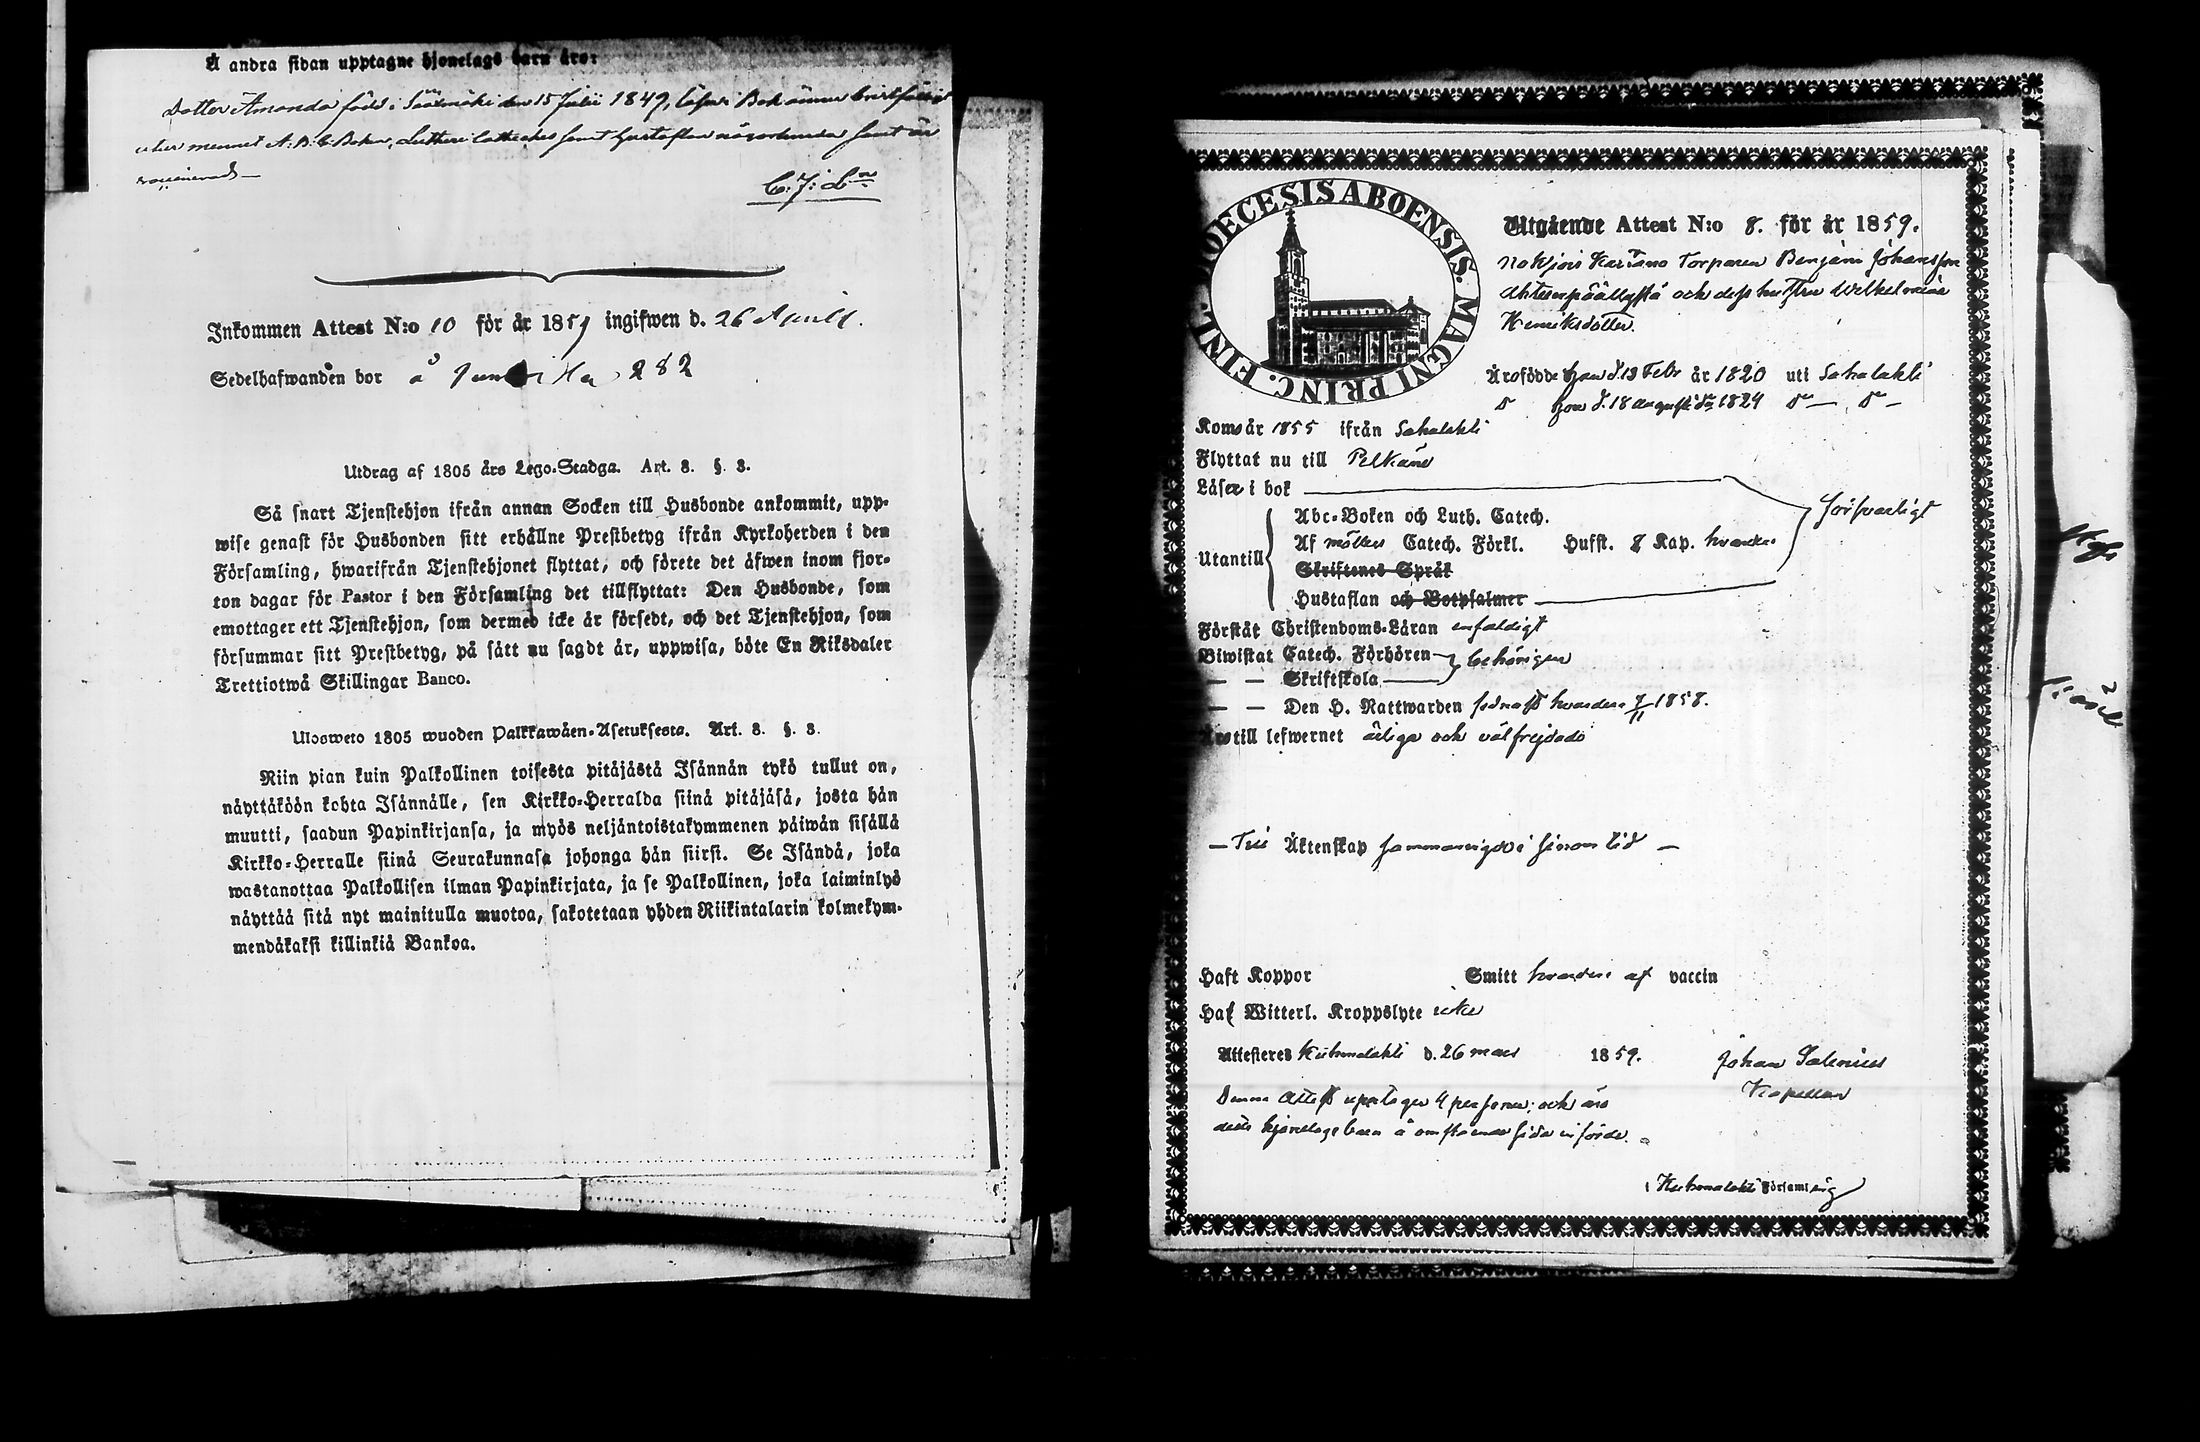 Å andra sidan upptagne hjonelags barn äro:
Dotter Amanda född i Sääxmäki den 15 Julii 1849, läser i Bok
utur minnet A.B.C. Boken, Lutheri Catteches samt Hustaflan samt är
vaccinerad —
C: J: Ln
Inkommen Attest N:o 10 för år 1859 ingifwen d. 26 Aprill.
Sedelhafwanden bor å 282
Utdrag af 1805 års Lego-Stadga. Art. 3. §. 3.
Så snart Tjenstehjon ifrån annan Socken till Husbonde ankommit, upp-
wise genast för Husbonden sitt erhållne Prestbetyg ifrån Kyrkoherden i den
Församling, hwarifrån Tjenstehjonet flyttat, och förete det äfwen inom fjor-
ton dagar för Pastor i den Församling det tillflyttat: Den Husbonde, som
emottager ett Tjenstehjon, som dermed icke är försedt, och det Tjenstehjon, som
försummar sitt Prestbetyg, på sätt nu sagdt är, uppwisa, böte En Riksdaler
Trettiotwå Skillingar Banco.
Ulosweto 1805 wuoden Palkkawäen-Asetuksesta. Art. 3. §. 3.
Niin pian kuin Palkollinen toisesta pitäjästä Isännän tykö tullut on,
näyttäköön kohta Isännälle, sen Kirkko-Herralda siinä pitäjäsä, josta hän
muutti, saadun Papinkirjansa, ja myös neljäntoistakymmenen päiwän sisällä
Kirkko-Herralle siinä Seurakunnasa johonga hän siirsi. Se Isändä, joka
wastanottaa Palkollisen ilman Papinkirjata, ja se Palkollinen, joka laiminlyö
näyttää sitä nyt mainitulla muotoa, sakotetaan yhden Riikintalarin kolmekym-
mendäkaksi killinkiä Bankoa.
DIOECESIS ABOENSIS. MAGNI PRINC. FINL.
Utgående Attest N:o 8. för år 1859.
Torparen Benjam Johansson
och dess hustru Wilhelmina
Henriksdotter.
Äro födde han d. 13 Febr år 1820 uti Sahalahti
D hon d. 18 augusti 1824 Do — Do —
Koms år 1855 ifrån Sahalahti
Flyttat nu till Pelkäne
Läser i bok
försvarligt
Utantill
Abc-Boken och Luth. Catech.
Af möllers Catech. Förkl. Husst. 8 Kap. hvardera
Skriftenes Språk
Hustaflan och Botpsalmer
Förstår Christendoms-Läran enfaldigt
Biwistat Catech. Förhören behörigen
— — Skriftskola
— — Den H. Nattwarden sednast hvardera 7/11 1858.
Äro till lefwernet ärliga och välfrejdade
— Till Äktenskap sammanvigde i sinom tid —
Haft Koppor Smitt hvardera af vaccin
Haf Witterl. Kroppslyte icke
Attesteres Kuhmalahti d. 26 mars 1859. Johan Salenius
Kapellan
Denna attest upptager 4 personer; och äro
dess hjonelags barn å omstående sida införde.
i Kuhmalahti Församling